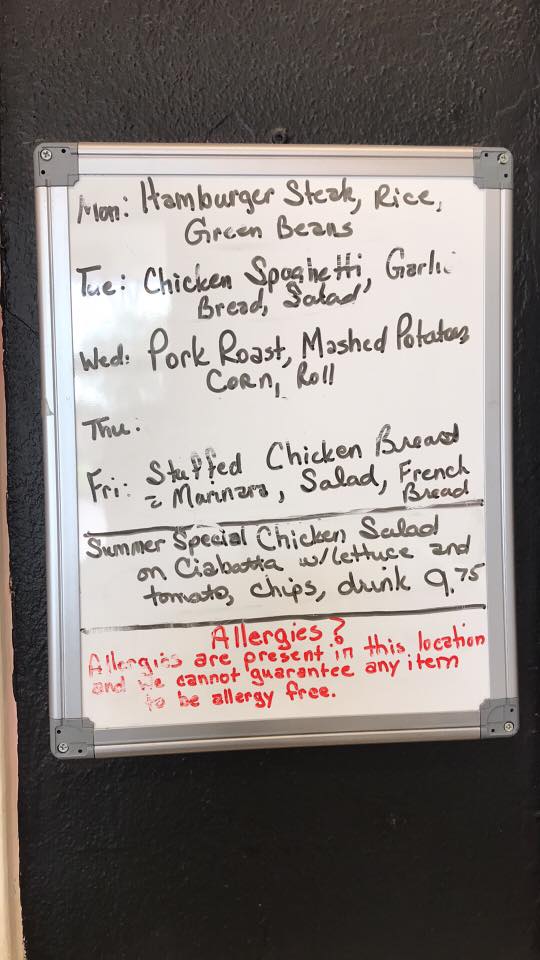 Mon: Hamburger Steak, Rice,
Green Beans
Tue: Chicken Spaghetti, Garlic
Bread, Salad
Wed: Pork Roast, Mashed Potatoes,
Corn, Roll
Thu:
Fri: Stuffed Chicken Breast
Marinara, Salad, French
Bread
Summer Special Chicken Salad
on Ciabatta w/lettuce and
tomato, chips, drink 9.75
Allergies?
Allergies are present in this location
and we cannot guarantee any item
to be allergy free.